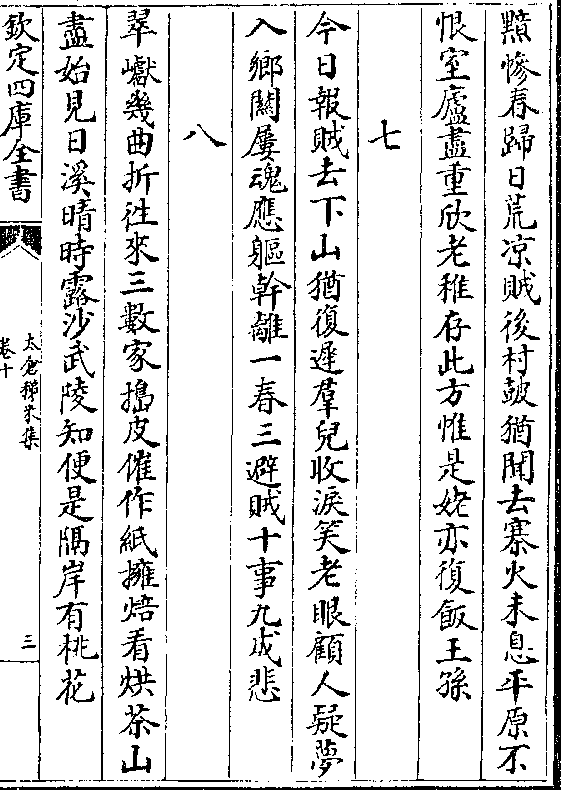 黯慘春歸日荒凉賊後村鼓猶聞去寨火未息平原不
恨室廬盡重欣老稚存此方惟是姥亦復飯王孫
七
今日報賊去下山猶復遲羣兒收淚笑老眼顧人疑夢
入鄉關屢魂應軀幹離一春三避賊十事九成悲
八
翠巘幾曲折徃來三數家搗皮催作紙擁焙看烘茶山
盡始見日溪晴時露沙武陵知便是隔岸有桃花
欽定四庫全書
太倉稊米集
卷十
三